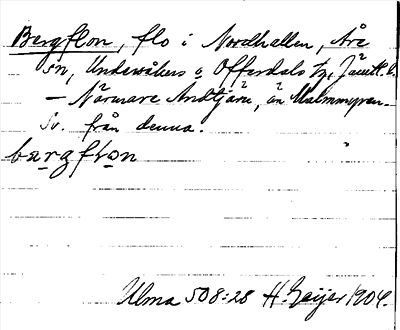 Bergflon, flo i Nordhallen, Åre
sn, Undersåkers o Offerdals tg, Jämtl. l.
– Närmare Andtjärn, än Malmmyren.
Sv. från denna.
bærgflon
Ulma 508:28 H. Geijer 1904.